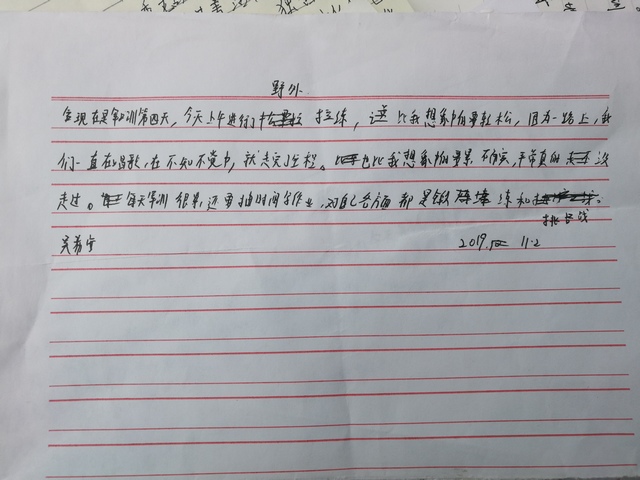 野外
现在是军训第四天,今天上午进行了拉练,这比我想象中的要轻松,因为一路上,我
们一直在唱歌,在不知不觉中,就走完了全程。也比我想象中的要累,不确实,平常真的没
走过。每天军训很累,还要抽时间写作业,对自己各方面都是锻练和
挑战
2019. 11.2